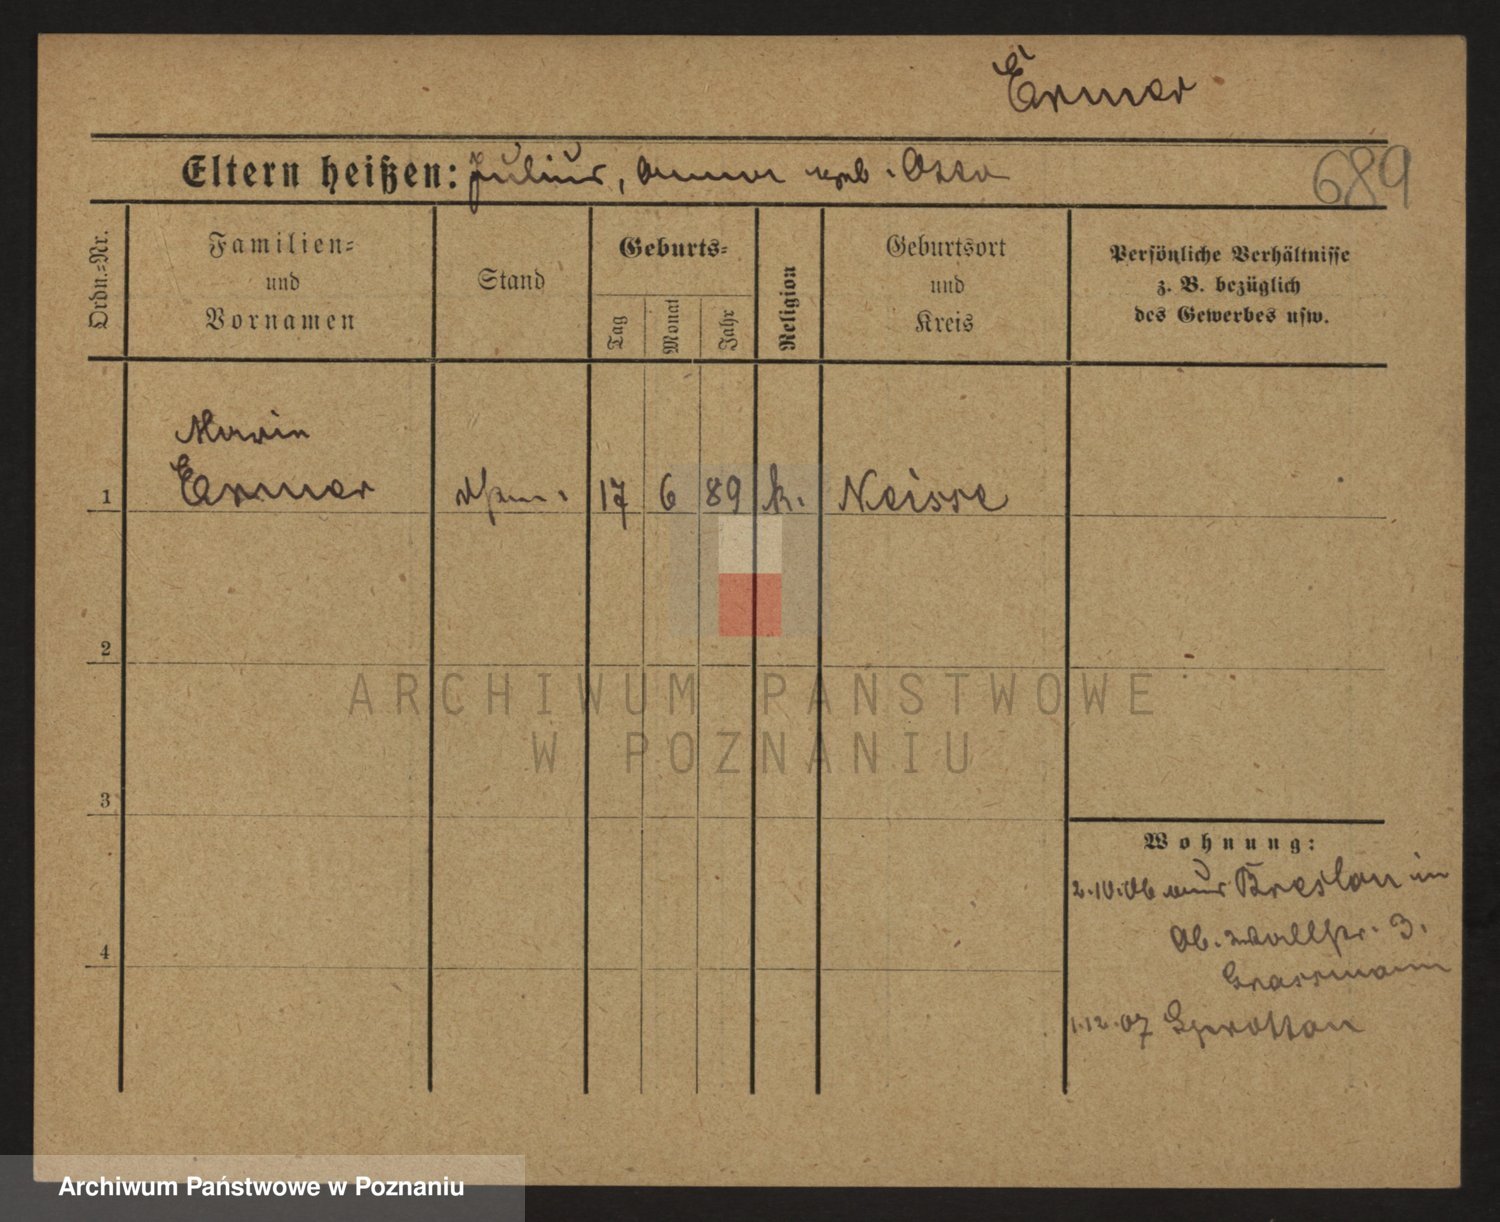 Ermer
Eltern heißen: Julius, Anna geb. Otto
689
Ordn.-Nr.
Familien-
und
Vornamen
Stand
Geburts-
Tag
Monat
Jahr
Religion
Geburtsort
und
Kreis
Persönliche Verhältnisse
z. B. bezüglich
des Gewerbes usw.
Marie
1 Ermer 17 6 89 k. Neisse
2
ARCHIWUM PAŃSTWOWE
W POZNANIU
3
Wohnung:
2.10.06 aus Breslau in
Ob. Wallstr. 3.
Grassmann
4
1.12.07 Sprottau
Archiwum Państwowe w Poznaniu